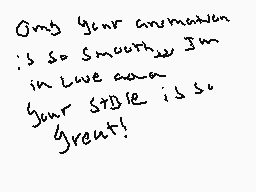 Omg your animation
is so smooth,,, Im
in love and
your style is so
great!